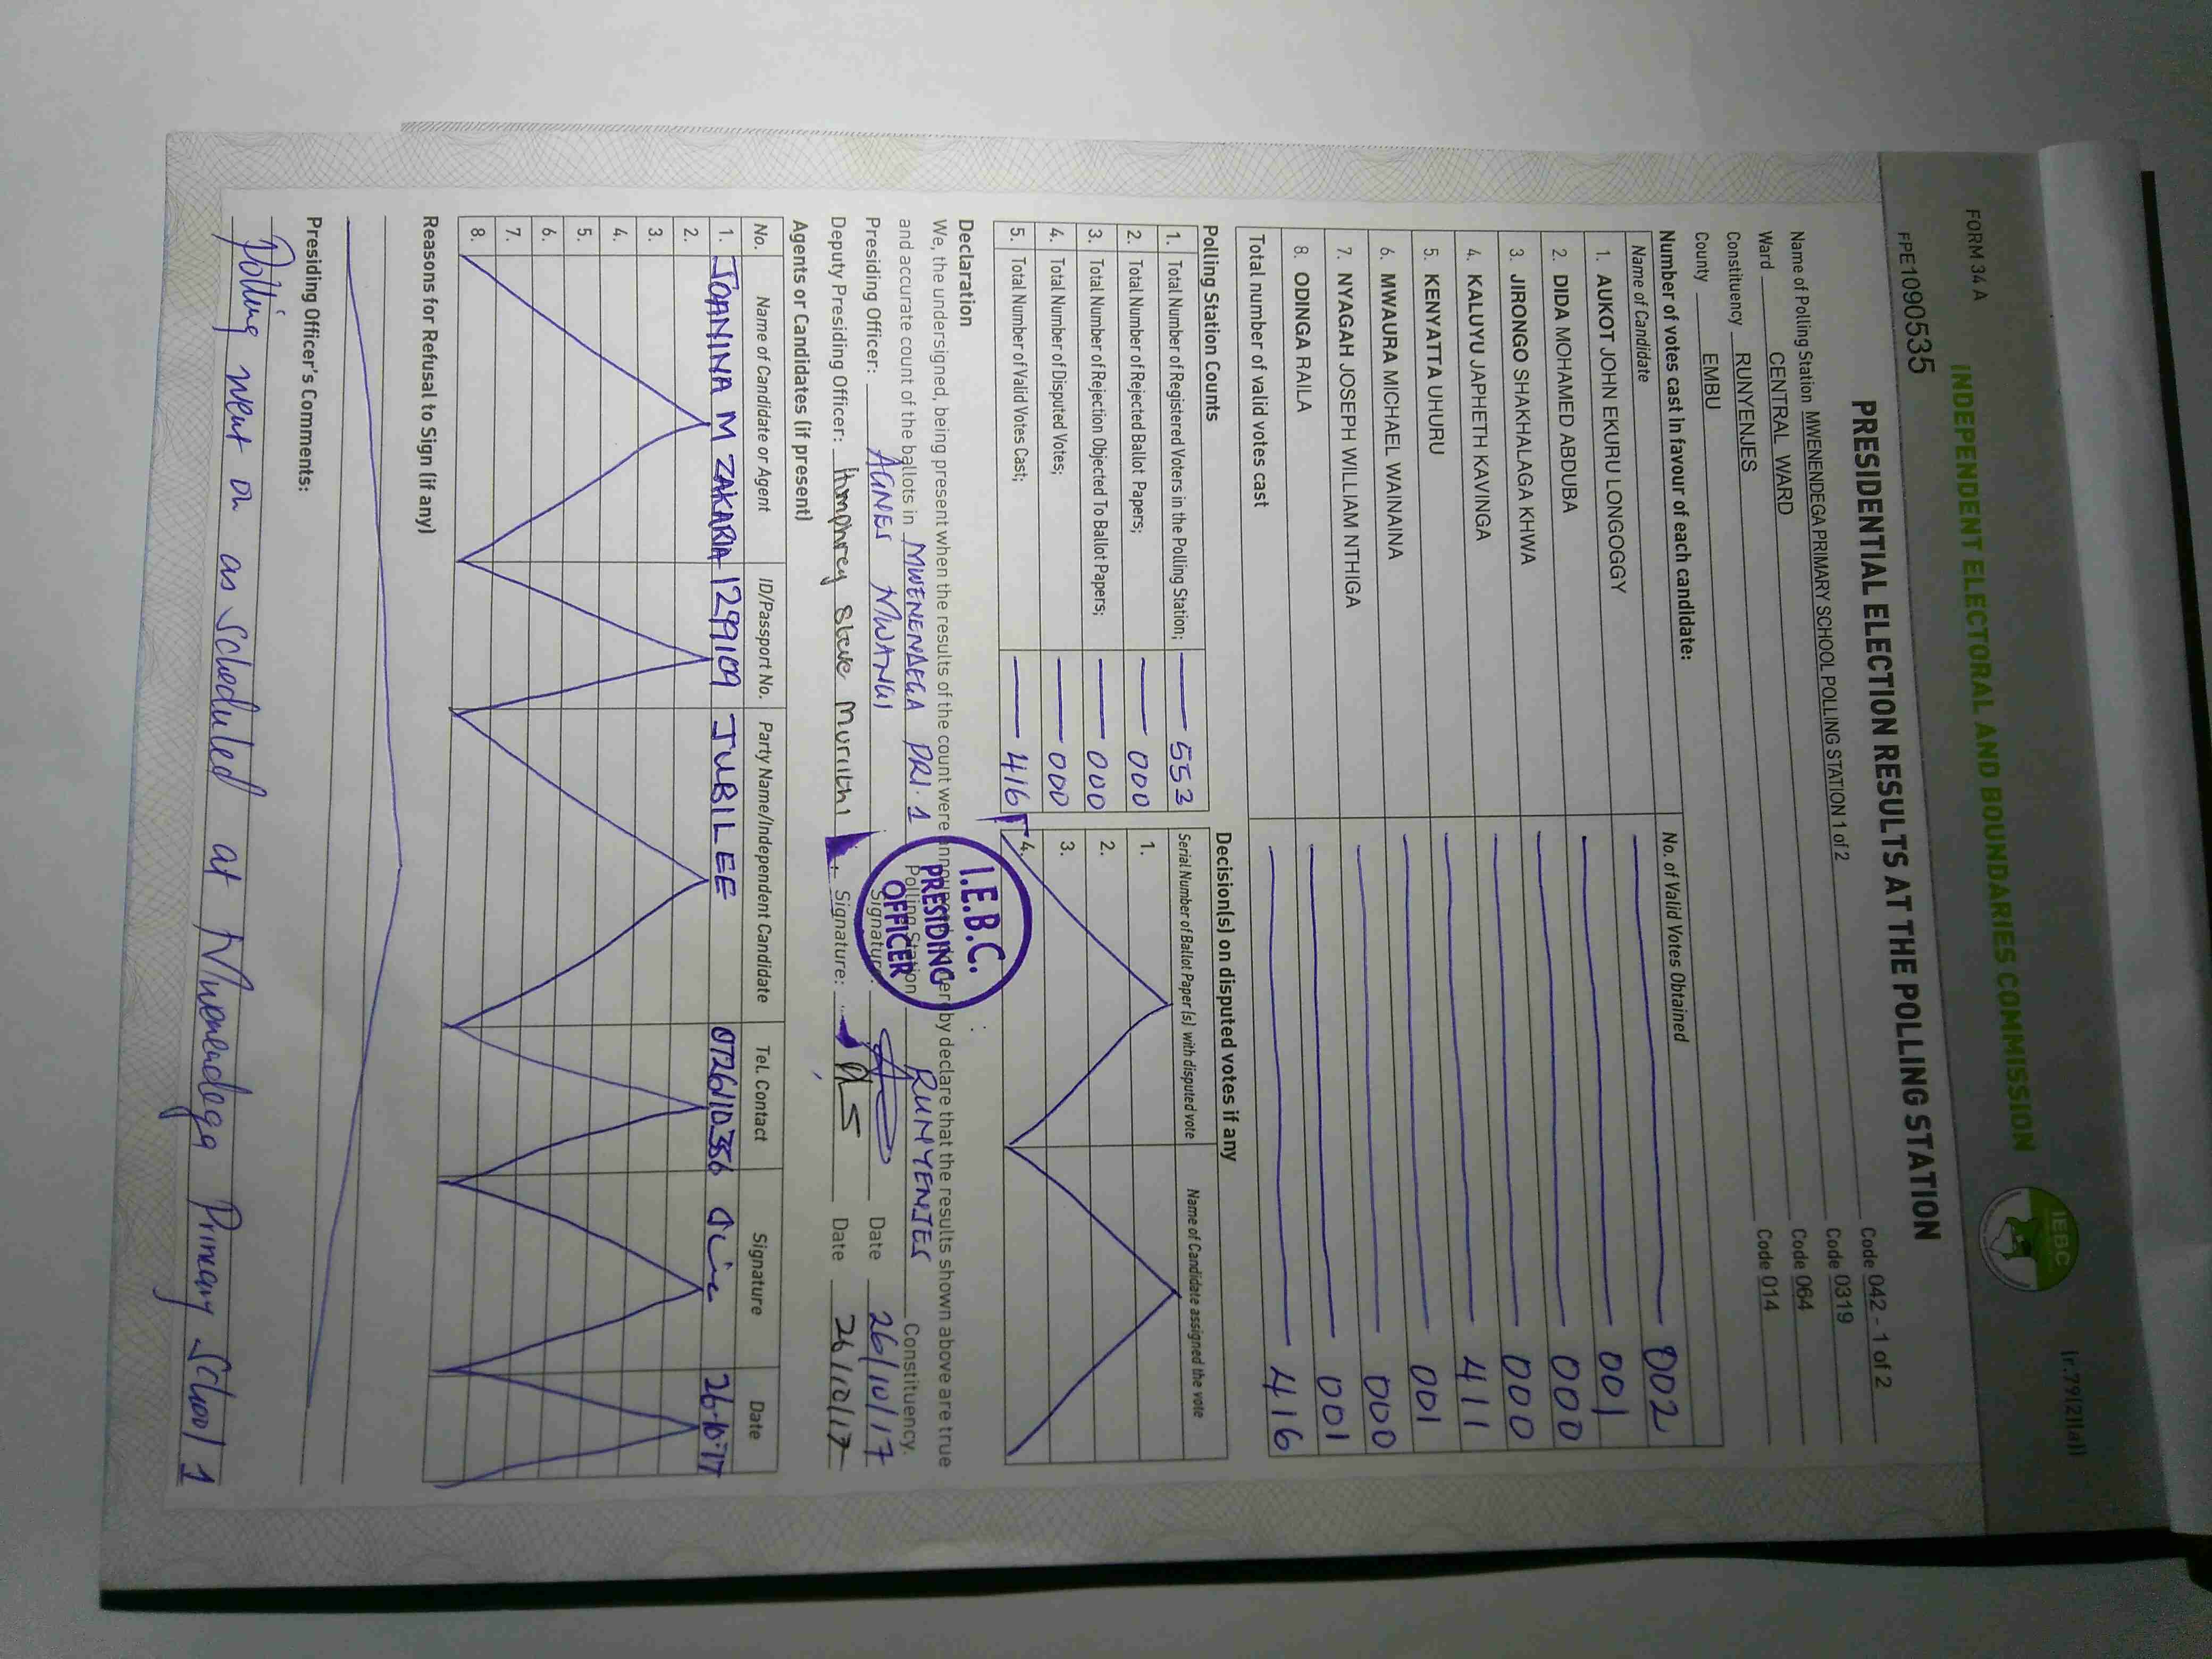 FORM 34 A
(r.79(2)(a))
INDEPENDENT ELECTORAL AND BOUNDARIES COMMISSION
IEBC
FPE1090535
PRESIDENTIAL ELECTION RESULTS AT THE POLLING STATION
Name of Polling Station MWENENDEGA PRIMARY SCHOOL POLLING STATION 1 of 2 Code 042 - 1 of 2
Ward CENTRAL WARD Code 0319
Constituency RUNYENJES Code 064
County EMBU Code 014
Number of votes cast in favour of each candidate:
Name of Candidate No. of Valid Votes Obtained
1. AUKOT JOHN EKURU LONGOGGY 002
2. DIDA MOHAMED ABDUBA 001
3. JIRONGO SHAKHALAGA KHWA 000
4. KALUYU JAPHETH KAVINGA 000
5. KENYATTA UHURU 411
6. MWAURA MICHAEL WAINAINA 001
7. NYAGAH JOSEPH WILLIAM NTHIGA 000
8. ODINGA RAILA 001
Total number of valid votes cast 416
Polling Station Counts Decision(s) on disputed votes if any
Serial Number of Ballot Paper (s) with disputed vote Name of Candidate assigned the vote
1. Total Number of Registered Voters in the Polling Station; 553
2. Total Number of Rejected Ballot Papers; 000 1.
3. Total Number of Rejection Objected To Ballot Papers; 000 2.
4. Total Number of Disputed Votes; 000 3.
5. Total Number of Valid Votes Cast; 416 4.
Declaration
We, the undersigned, being present when the results of the count were announced, hereby declare that the results shown above are true
and accurate count of the ballots in MWENENDEGA PRI. 1 Polling Station RUNYENJES Constituency.
Presiding Officer: AGNES MWANGI Signature: Date 26/10/17
Deputy Presiding Officer: Humphrey Steve Muriithi Signature: Date 26/10/17
I.E.B.C.
PRESIDING
OFFICER
Agents or Candidates (if present)
No. Name of Candidate or Agent ID/Passport No. Party Name/Independent Candidate Tel. Contact Signature Date
1. JOANINA M ZAKARIA 1299109 JUBILEE 0726110356 26-10-17
2.
3.
4.
5.
6.
7.
8.
Reasons for Refusal to Sign (if any)
Presiding Officer's Comments:
Polling went on as scheduled at Mwenendega Primary School 1